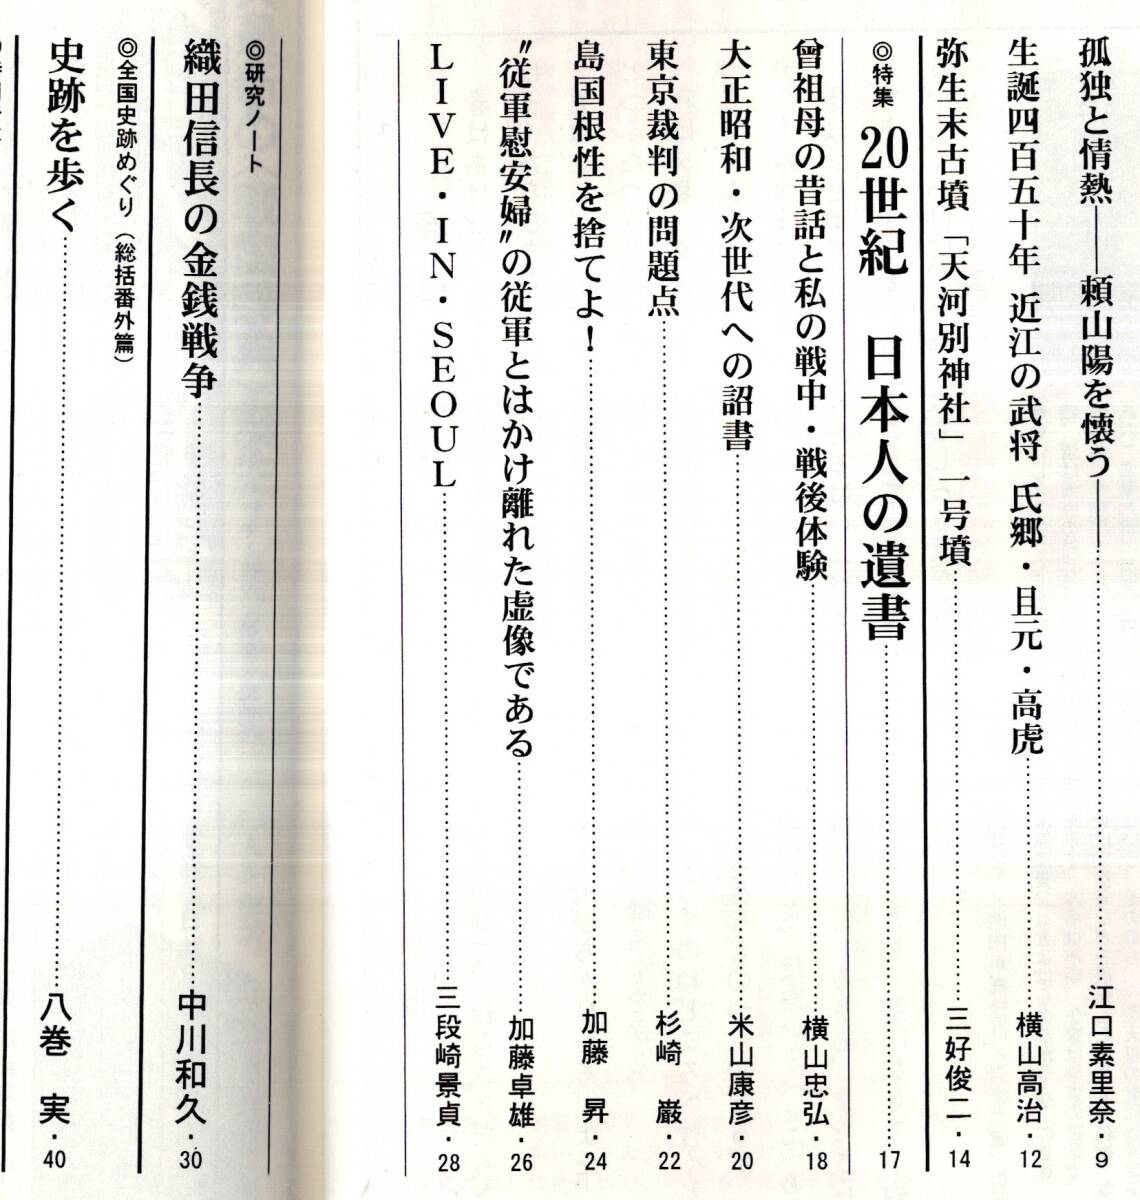 孤独と情熱――頼山陽を懐う――……江口素里奈・9
生誕四百五十年 近江の武将 氏郷・且元・高虎……横山高治・12
弥生末古墳「天河別神社」一号墳……三好俊二・14
◎特集 20世紀 日本人の遺書……17
曾祖母の昔話と私の戦中・戦後体験……横山忠弘・18
大正昭和・次世代への詔書……米山康彦・20
東京裁判の問題点……杉崎 巌・22
島国根性を捨てよ!……加藤 昇・24
〝従軍慰安婦〟の従軍とはかけ離れた虚像である……加藤卓雄・26
LIVE・IN・SEOUL……三段崎景貞・28
◎研究ノート
織田信長の金銭戦争……中川和久・30
◎全国史跡めぐり(総括番外篇)
史跡を歩く……八巻 実・40